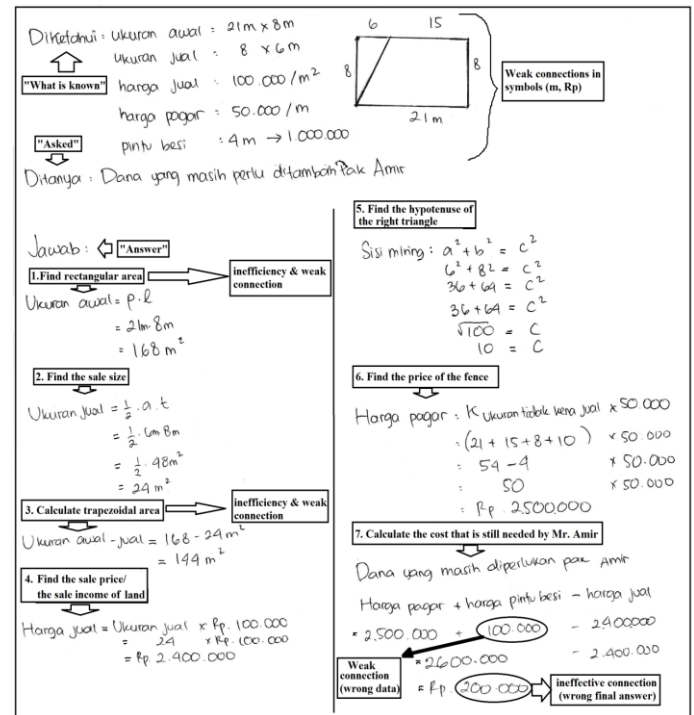 Diketahui : ukuran awal : 21m x 8m
ukuran jual : 8 x 6m
"What is known"
harga jual : 100.000/m²
harga pagar : 50.000/m
"Asked"
pintu besi : 4m → 1.000.000
6 15
8 8
21 m
Weak connections in
symbols (m, Rp)
Ditanya : Dana yang masih perlu ditambah Pak Amir
Jawab : "Answer"
1.Find rectangular area
inefficiency & weak
connection
Ukuran awal = p.l
= 21m.8m
= 168 m²
2. Find the sale size
Ukuran jual = 1/2 . a . t
= 1/2 . 6m 8m
= 1/2 . 48m²
= 24 m²
3. Calculate trapezoidal area
inefficiency & weak
connection
Ukuran awal - jual = 168 - 24 m²
= 144 m²
4. Find the sale price/
the sale income of land
Harga jual = Ukuran jual x Rp. 100.000
= 24 x Rp. 100.000
= Rp. 2.400.000
5. Find the hypotenuse of
the right triangle
Sisi miring : a² + b² = c²
6² + 82 = c²
36 + 64 = c²
36 + 64 = c²
√100 = c
10 = c
6. Find the price of the fence
Harga pagar : K ukuran tidak kena jual x 50.000
: (21 + 15 + 8 + 10) x 50.000
: 54 - 4 x 50.000
: 50 x 50.000
: Rp. 2.500.000
7. Calculate the cost that is still needed by Mr. Amir
Dana yang masih diperlukan pak Amir
Harga pagar + harga pintu besi - harga jual
= 2.500.000 + 100.000 - 2.400.000
= 2.600.000 - 2.400.000
= Rp. 200.000
Weak
connection
(wrong data)
ineffective connection
(wrong final answer)